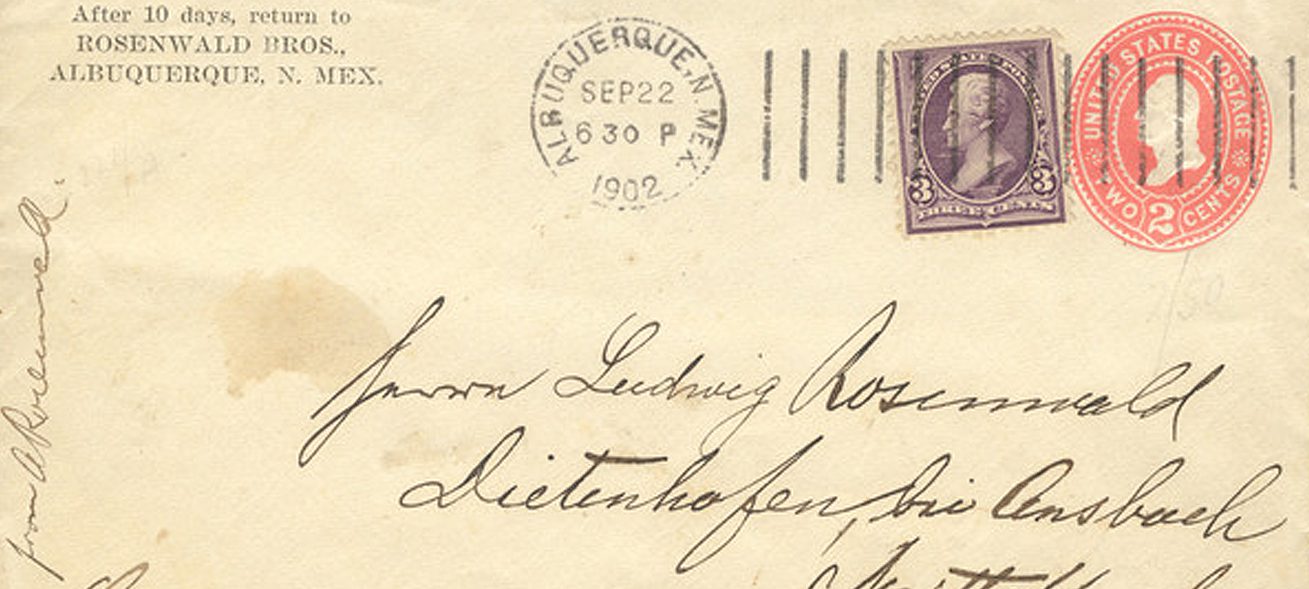 After 10 days, return to
ROSENWALD BROS.,
ALBUQUERQUE, N. MEX.
ALBUQUERQUE, N. MEX.
SEP 22
6 30 P
1902
UNITED STATES POSTAGE
3 3
THREE CENTS
UNITED STATES POSTAGE
TWO 2 CENTS
150
from A Rosenwald.
Herrn Ludwig Rosenwald
Dietenhofen, bei Ansbach